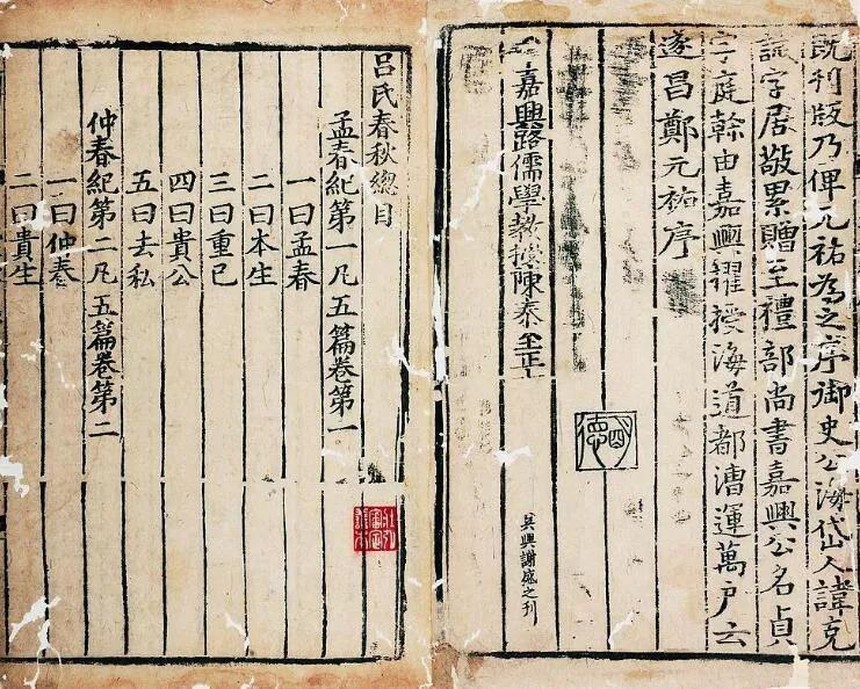 既刋版乃俾元祐為之序御史公海岱人諱克
誠字居敬累贈至禮部尚書嘉興公名貞
字庭榦由嘉興擢授海道都漕運萬戶云
遂昌鄭元祐序
明德
嘉興路儒學教授陳泰至正
吳興謝盛之刊
呂氏春秋總目
孟春紀第一凡五篇卷第一
一曰孟春
二曰本生
三曰重己
四曰貴公
五曰去私
仲春紀第二凡五篇卷第二
一曰仲春
二曰貴生